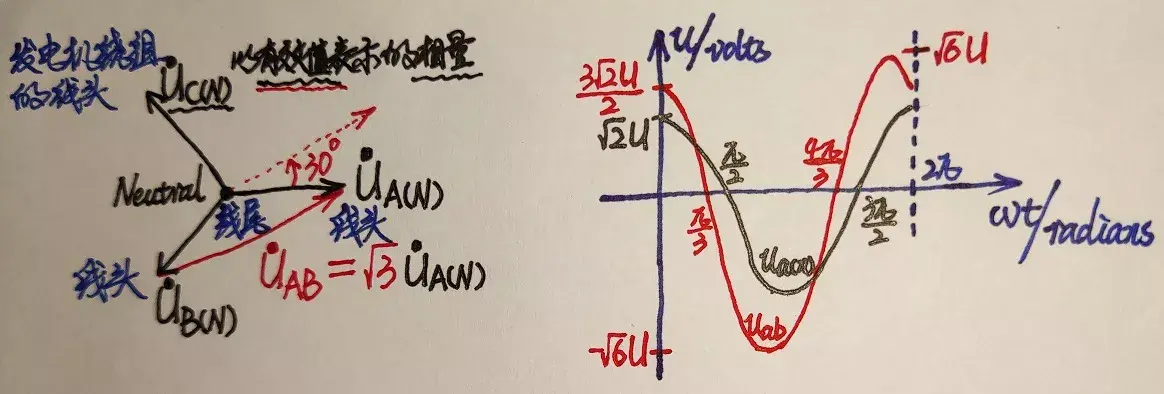 发电机绕组
的线头
U̇C(N)
以有效值表示的相量
Neutral
30°
U̇A(N)
线尾
线头
线头
U̇B(N)
U̇AB = √3 U̇A(N)
u/volts
3√2U/2
√2U
√6U
-√6U
π/3
π/2
4π/3
3π/2
2π
ωt/radians
ua(n)
uab